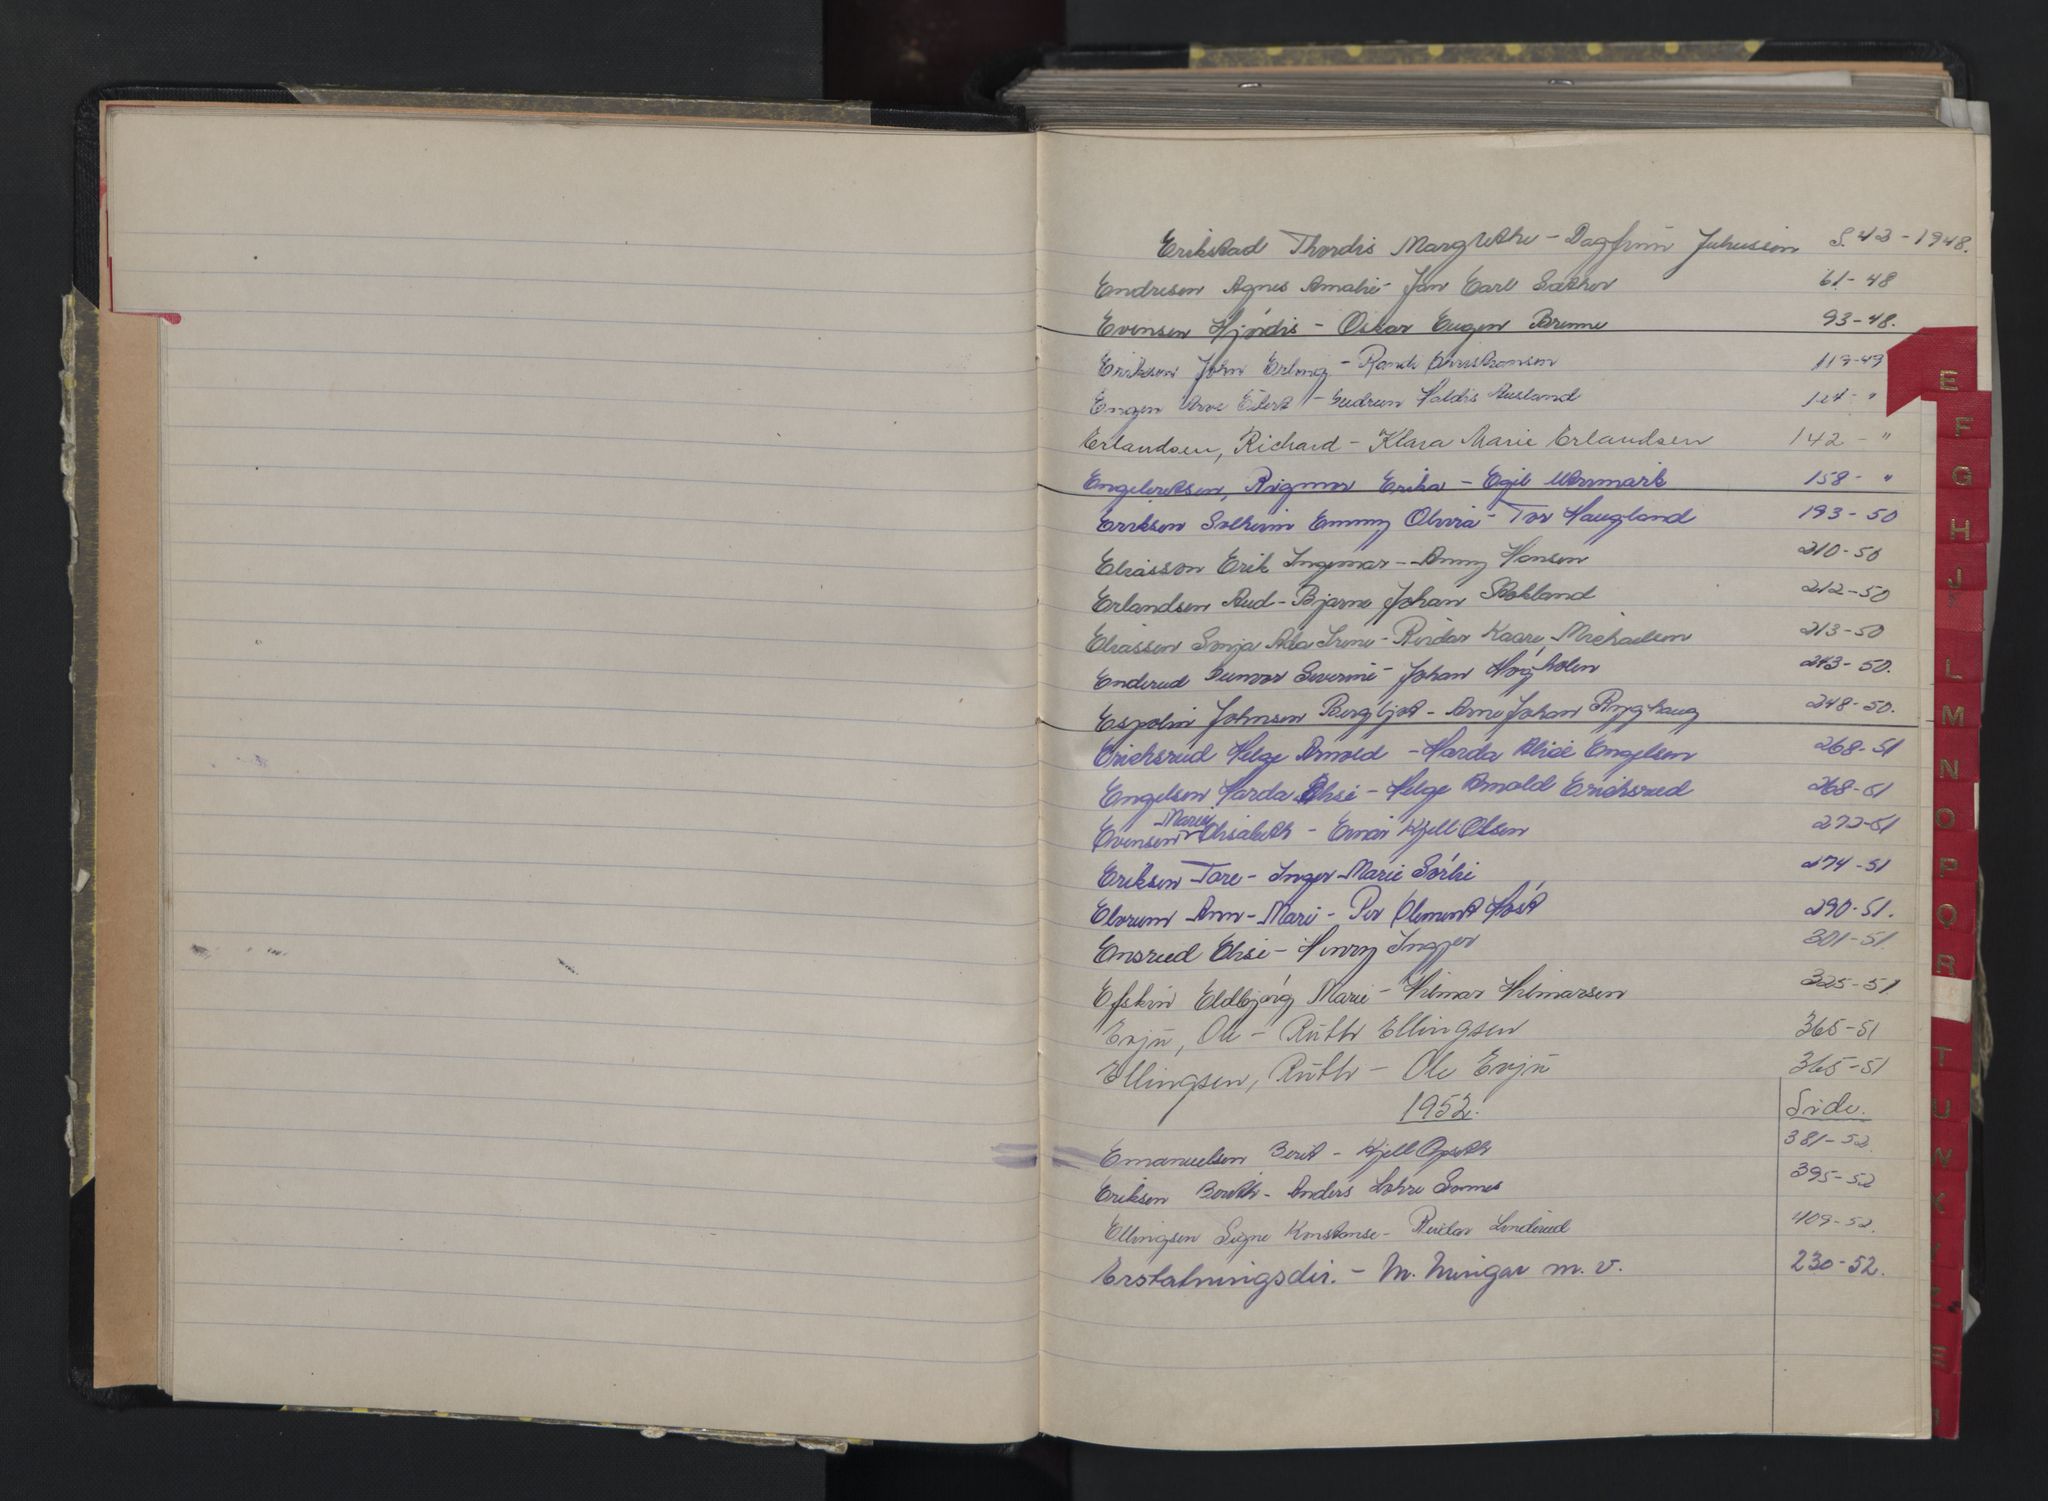 Erikstad Thordis Margrethe - Dagfinn Juliussen S. 43 - 1948.
Endresen Agnes Amalie - Jan Carl Sæther 61-48
Evensen Hjördis - Oskar Eugen Brenne 93-48.
Eriksen John Erling - Randi Christiansen 119-49
Engen Arve Eilert - Gudrun Haldis Ausland 124 - "
Erlandsen, Richard - Klara Marie Erlandsen 142 - "
Engebretsen, Rigmor Erika - Egil Wermark 158 - "
Eriksen Solheim Emmy Olivia - Tor Haugland 193-50
Eliasson Erik Ingemar - Anny Hansen 210-50
Erlandsen Aud - Bjarne Johan Stokland 212-50
Eliassen Sonja Alda Irene - Reidar Kaare Michaelsen 213-50
Enderud Gunvor Severine - Johan Høgholen 243-50.
Espolin Johnsen Bergljot - Arne Johan Ryghaug 248-50.
Erichsrud Helge Arnold - Harda Alise Engelsen 268-51
Engelsen Harda Alise - Helge Arnold Erichsrud 268-51
Evensen Mary Elisabeth - Einar Kjell Olsen 272-51
Eriksen Tore - Inger-Marie Sörlie 274-51
Elvrum Ann-Mari - Per Clement Höst 290-51.
Ensrud Elise - Henry Ingjer 301-51.
Efskin Eldbjörg Marie - Hilmar Hilmarsen 325-51
Evju, Ole - Ruth Ellingsen 365-51
Ellingsen, Ruth - Ole Evju 365-51
1952. Side.
Emanuelsen Berit - Kjell Opseth 381-52
Eriksen Berith - Anders Lohre Sannes 395-52
Ellingsen Signe Konstanse - Reidar Linderud 409-52.
Erstatningsdir. - M. Mingar m. v. 230-52.
E
F
G
H
J
L
M
N
O
P
Q
R
T
U